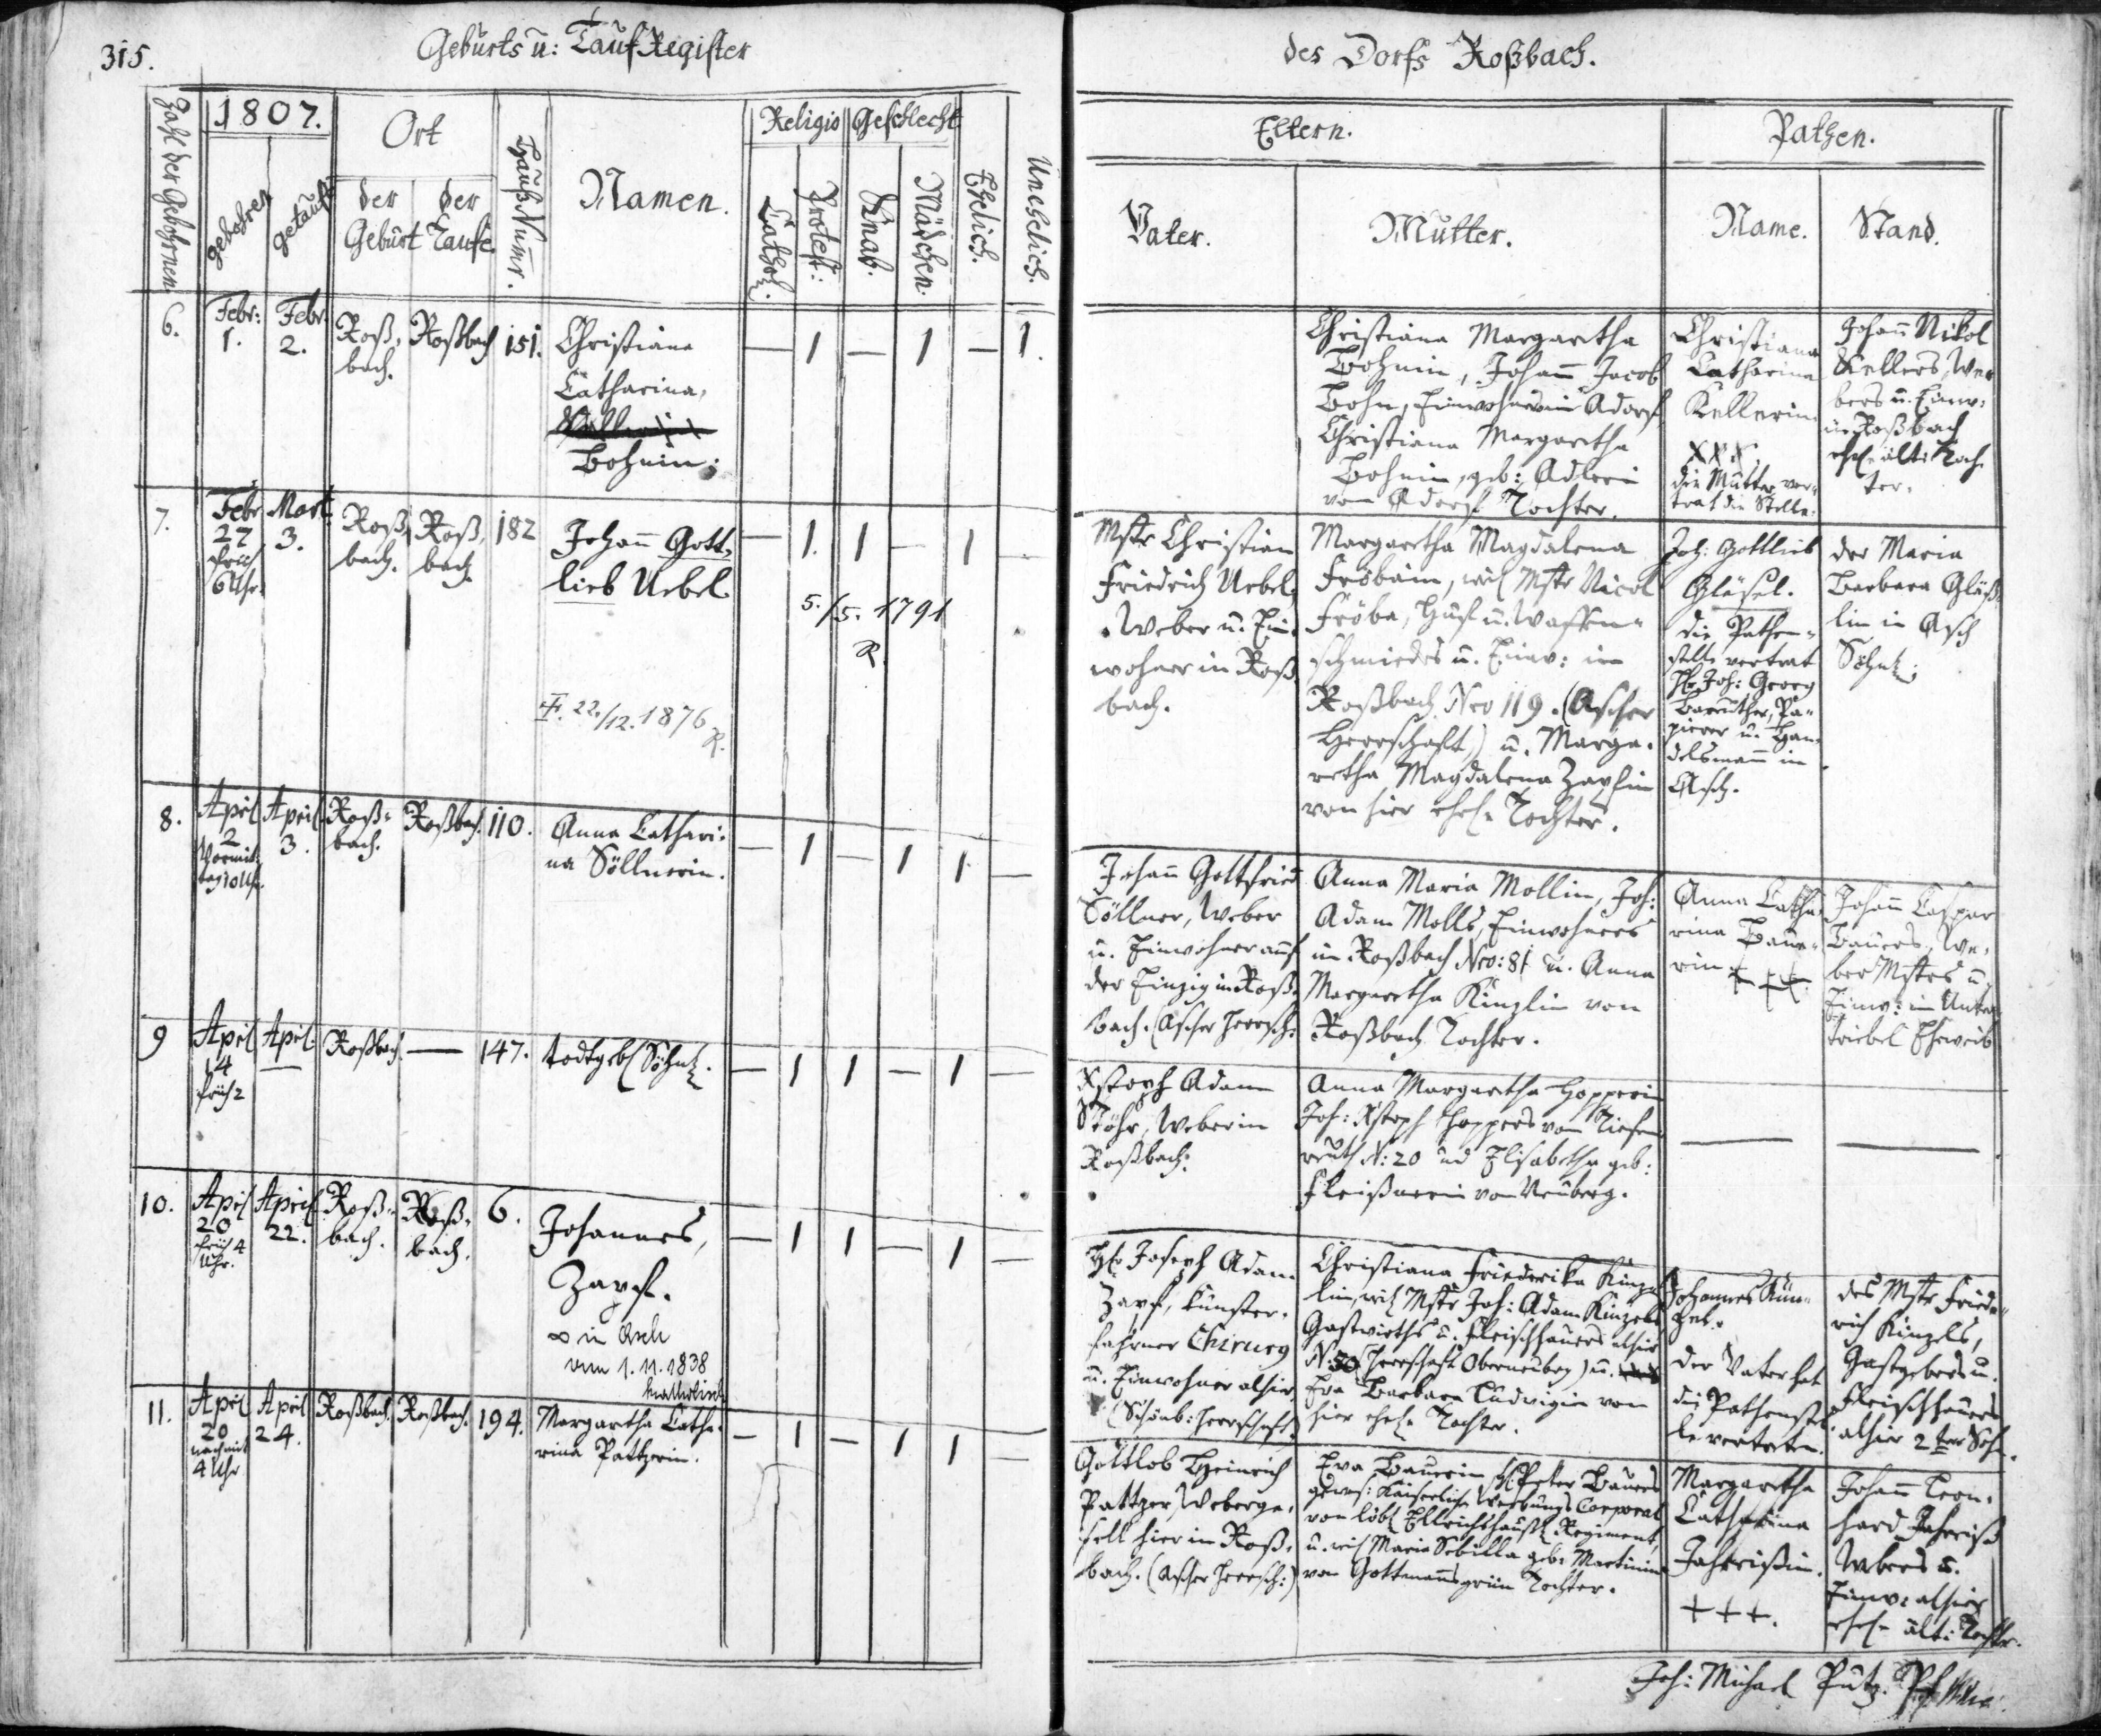 315.
Geburts u: Tauf Register
des Dorfs Roßbach.
Zahl der Gebohrnen.
1807.
gebohren
getauft
Ort
der Geburt
der Taufe.
Hauß Numr.
Namen.
Religio
Cathol.
Protest:
Geschlecht
Knab.
Mädchen.
Ehelich.
Unehelich.
Eltern.
Vater.
Mutter.
Pathen.
Name.
Stand.
6.
Febr:
1.
Febr.
2.
Roß,
bach.
Roßbach
151.
Christiana
Catharina,
Bohnin.
— 1 — 1 — 1.
Christiana Margaretha
Bohnin, Johann Jacob
Bohn, Einwohners in Adorf
Christiana Margaretha
Bohnin, geb: Adlerin
von Adorf Tochter.
Christiana
Catharina
Kellerin
XXX.
die Mutter ver-
trat die Stelle.
Johann Nikol
Kellers, We
bers u. Einw:
in Roßbach
ehel. älti Toch
ter.
7.
Febr
27
früh
6 Uhr.
Mart.
3.
Roß,
bach.
Roß,
bach.
182
Johann Gott,
lieb Uebel.
5./5. 1791
R.
22./12. 1876
R.
— 1. 1 — 1
Mstr Christian
Friedrich Uebel,
Weber u. Ein-
wohner in Roß
bach.
Margaretha Magdalena
Fröbain, weil Mstr Nicol
Fröba, Huf u. Waffen-
schmiedes u. Einw: in
Roßbach Nro 119. (Ascher
Herrschaft) u. Marga-
retha Magdalena Zapfin
von hier ehel. Tochter.
Joh: Gottlieb
Gläsel.
die Pathen-
stelle vertrat
Hr Joh: Georg
Bareuther, Pa-
pierer u. Han-
delsmann in
Asch.
der Maria
Barbara Gläß,
lin in Asch
Söhnl.
8.
April
2
Vormit-
tag 10 Uhr.
April
3.
Roß-
bach.
Roßbach.
110.
Anna Cathari-
na Söllnerin.
— 1 — 1 1. —
Johann Gottfried
Söllner, Weber
u. Einwohner auf
der Einzig in Roß-
bach. (Ascher Herrsch:
Anna Maria Mollin, Joh:
Adam Molls, Einwohners
in Roßbach Nro: 81 u. Anna
Margaretha Künzlin von
Roßbach Tochter.
Anna Catha
rina Baue-
rin. +++
Johann Caspar
Bauers, We-
ber Mstrs u.
Einw: in Unter
triebel Eheweib
9
April
14
früh 2
April.
—
Roßbach.
—
147.
todtgebl Söhnl.
— 1 1 — 1 —
Xstoph Adam
Stöhr, Weber in
Roßbach.
Anna Margaretha Hopperin
Joh: Xstoph Hoppers von Tiefen
reuth N: 20 und Elisabetha geb:
Fleißnerin von Neuberg.
— —
10.
April
20
früh 4
Uhr.
April
22.
Roß-
bach.
Roß-
bach.
6.
Johannes,
Zapf.
∞ in Asch
vom 1.11.1838
katholisch
— 1 1 — 1 —
Hr Joseph Adam
Zapf, Kunster-
fahrner Chirurg
u. Einwohner alhier
(Schönb: Herrschaft.
Christiana Friederika Künze
lin, weil Mstr Joh: Adam Künzels
Gastwirths u. Fleischhauers alhier
N: 50 Herrschaft Oberneuberg) u.
Eva Barbara Ludwigin von
hier ehel. Tochter.
Johannes Kün-
zel.
der Vater hat
die Pathenstel
le vertreten.
des Mstr Friede-
rich Künzels,
Gastgebers u.
Fleischhauers
alhier 2ter Sohn.
11.
April
20
nachmit
4 Uhr
April
24.
Roßbach.
Roßbach.
194.
Margaretha Catha-
rina Pattzerin.
— 1 — 1 1 —
Gottlob Heinrich
Pattzer, Weberge-
sell hier in Roß-
bach. (Ascher Herrsch:)
Eva Bauerin, Peter Bauers
gewes: Kaiserlich. Werbungs Corporal
von löbl Ellrichshaußl Regiment,
u. weil Maria Sebilla geb: Martinin
von Gottmannsgrün Tochter.
Margaretha
Catharina
Jahreißin.
+++.
Johann Leon-
hard Jahreiß
Webers u.
Einw: alhier
ehel. älti Tochter.
Joh: Michael Putz. Pf